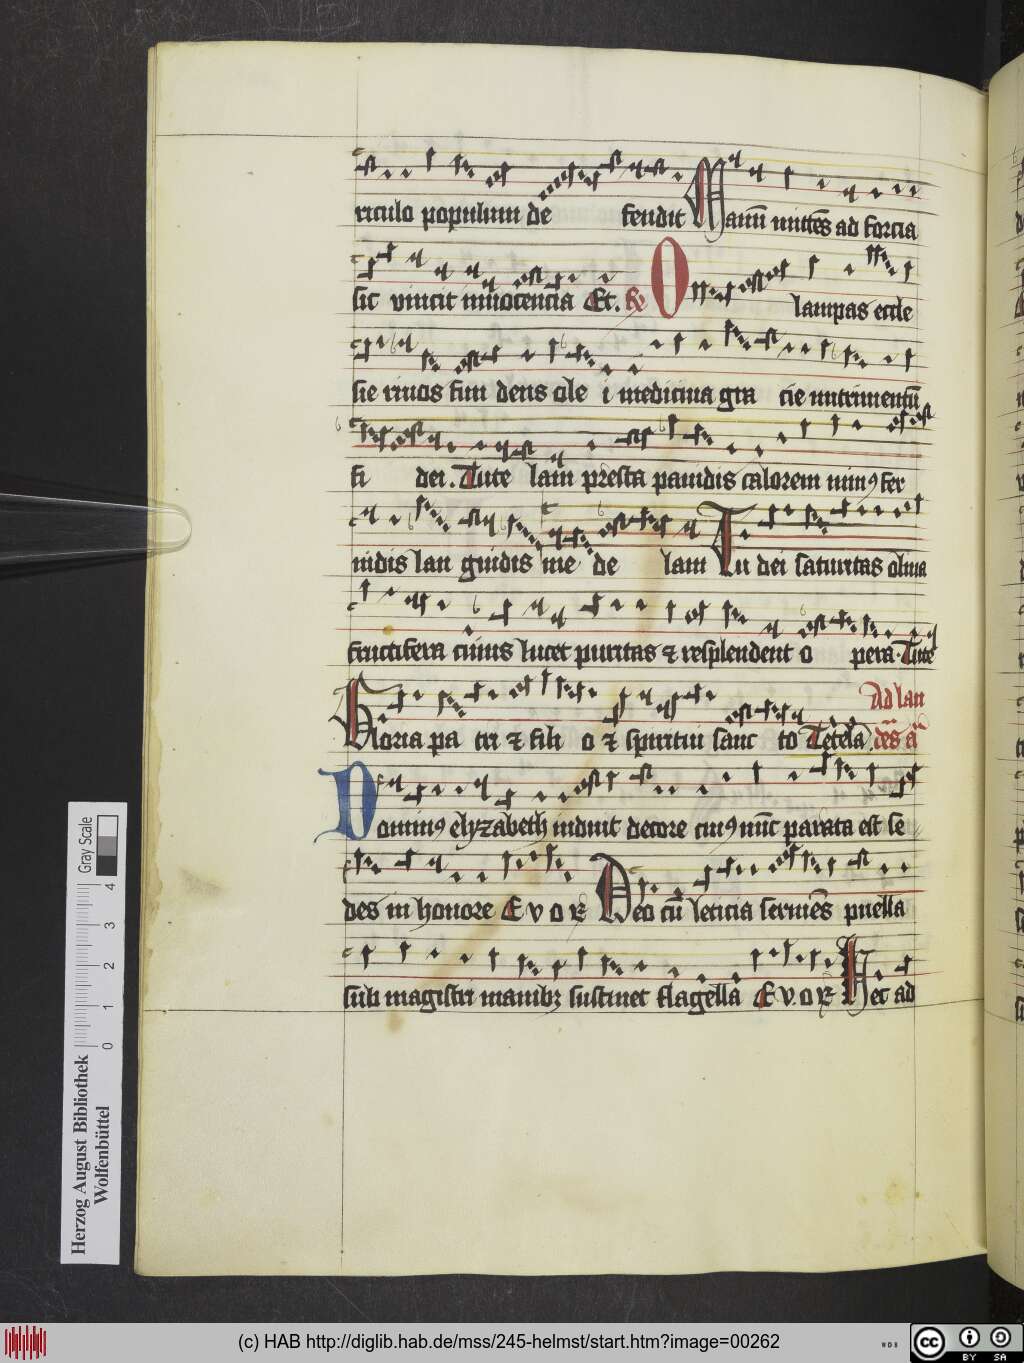 riculo populum de fendit Manū mittēs ad forcia
sic vincit innocencia Et. R O lampas eccle
sie rivos fun dens ole i medicina gra cie nutrimentū
fi dei. Tute lam presta pavidis calorem
vidis lan guidis me de lam Tu dei saturitas oliva
fructifera cuius lucet puritas ⁊ resplendent o pera. Tute
Gloria pa tri ⁊ fili o ⁊ spiritui sanc to Tetela. Ad lau
des a
Dominꝰ elyzabeth induit decore cuiꝰ nūc parata est se
des in honore E v o E Deo cū leticia serviēs puella
sub magistri manibꝫ sustinet flagella E v o E Hec ad
Gray Scale
0 1 2 3 4
Herzog August Bibliothek
Wolfenbüttel
(c) HAB http://diglib.hab.de/mss/245-helmst/start.htm?image=00262
WDB
cc BY SA